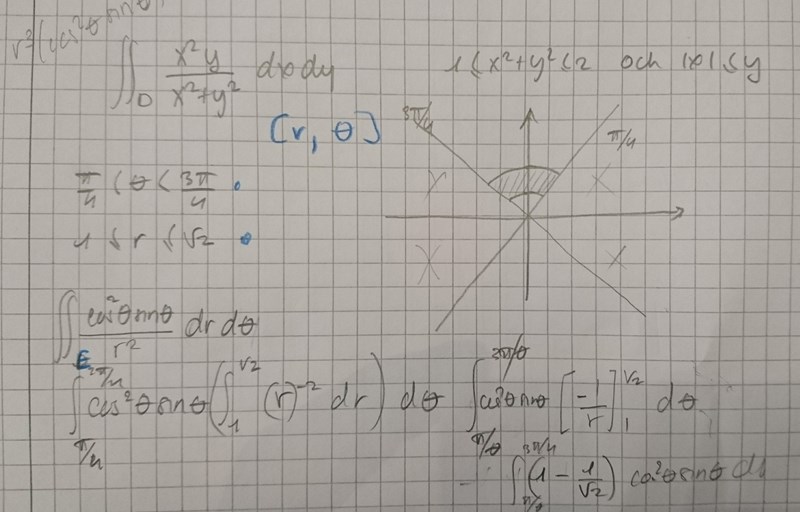 r³(cos²θ sinθ
∬_D x²y/(x²+y²) dxdy
1 ≤ x²+y² ≤ 2 och |x| ≤ y
[r, θ]
3π/4
π/4
π/4 < θ < 3π/4
1 ≤ r ≤ √2
∬_E cos²θ sinθ / r² dr dθ
∫_{π/4}^{3π/4} cos²θ sinθ (∫_1^{√2} (r)^{-2} dr) dθ
∫_{π/θ}^{3π/θ} cos²θ sinθ [-1/r]_1^{√2} dθ
∫_{π/4}^{3π/4} (1 - 1/√2) cos²θ sinθ dθ